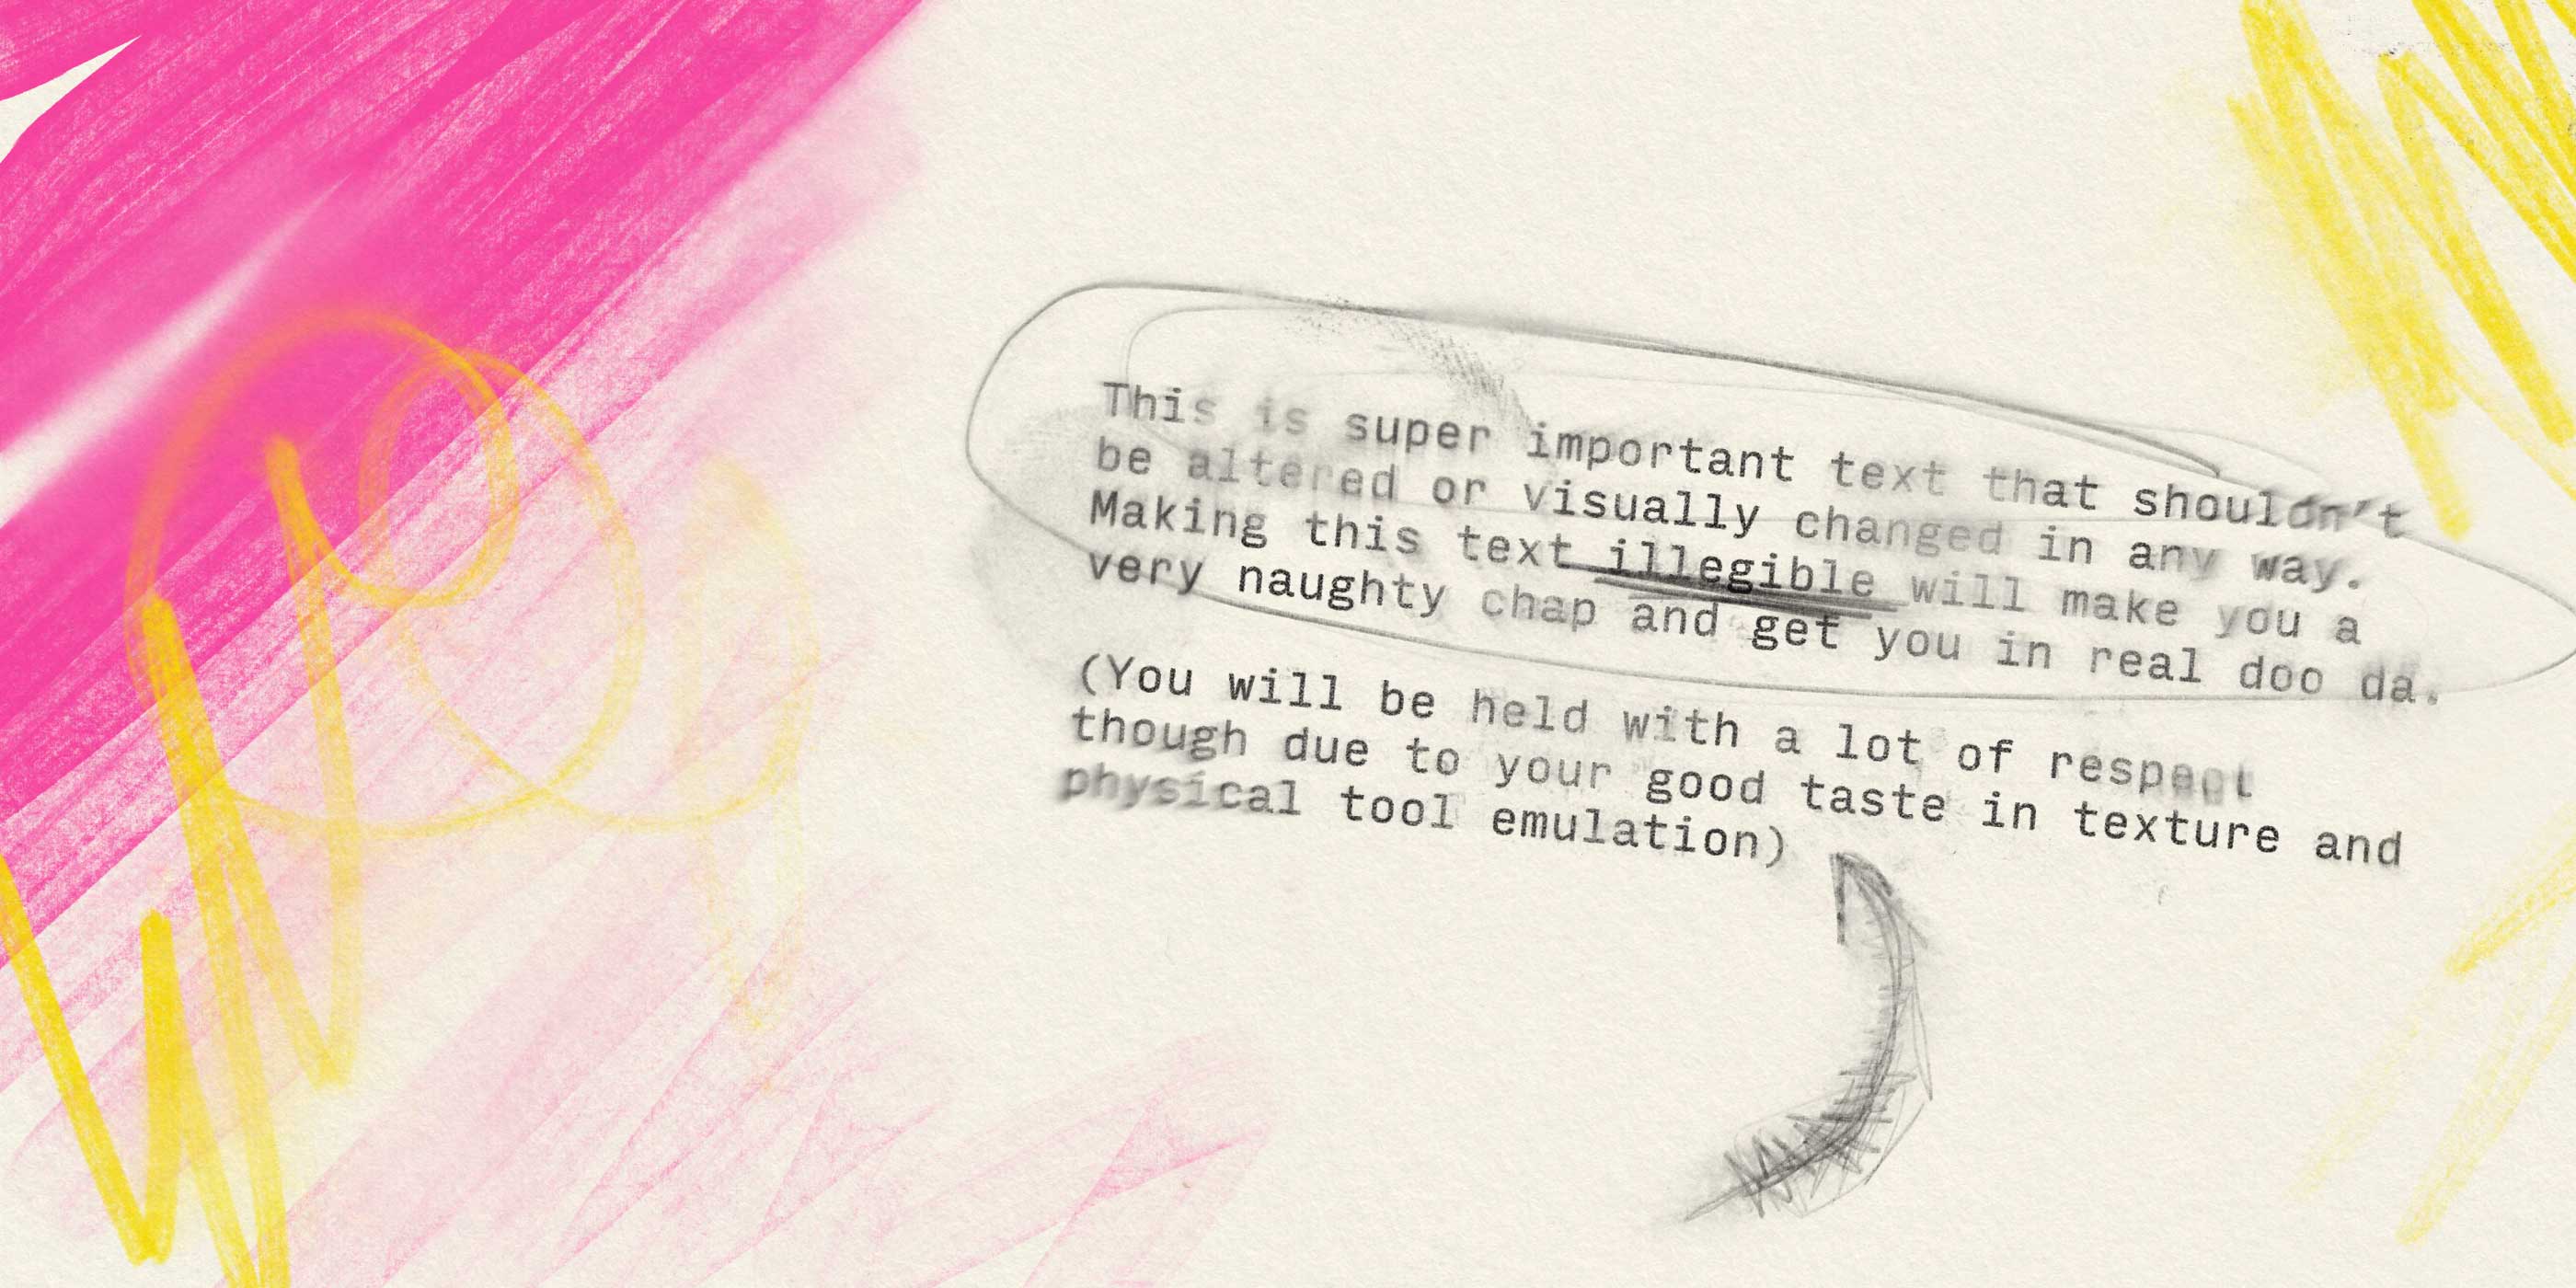 This is super important text that shouldn't
be altered or visually changed in any way.
Making this text illegible will make you a
very naughty chap and get you in real doo da.
(You will be held with a lot of respect
though due to your good taste in texture and
physical tool emulation)